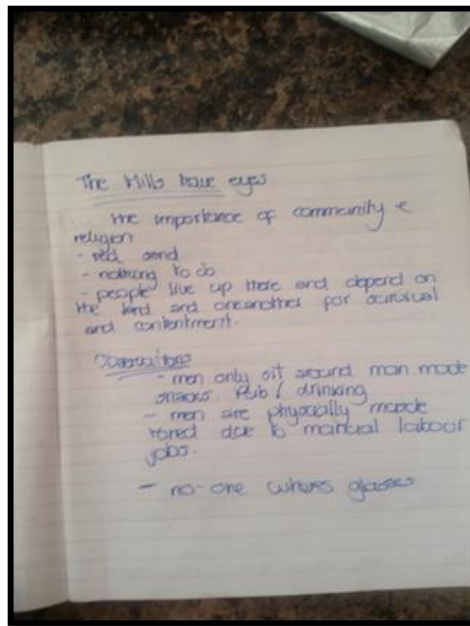 The Hills have eyes
... the importance of community &
religion
- red sand
- nothing to do
- people live up there and depend on
the land and oneanother for survival
and contentment.
Observations
- men only sit around man made
shacks. Pub / drinking
- men are physically muscle
toned due to manual labour
jobs.
- no-one wheres glasses